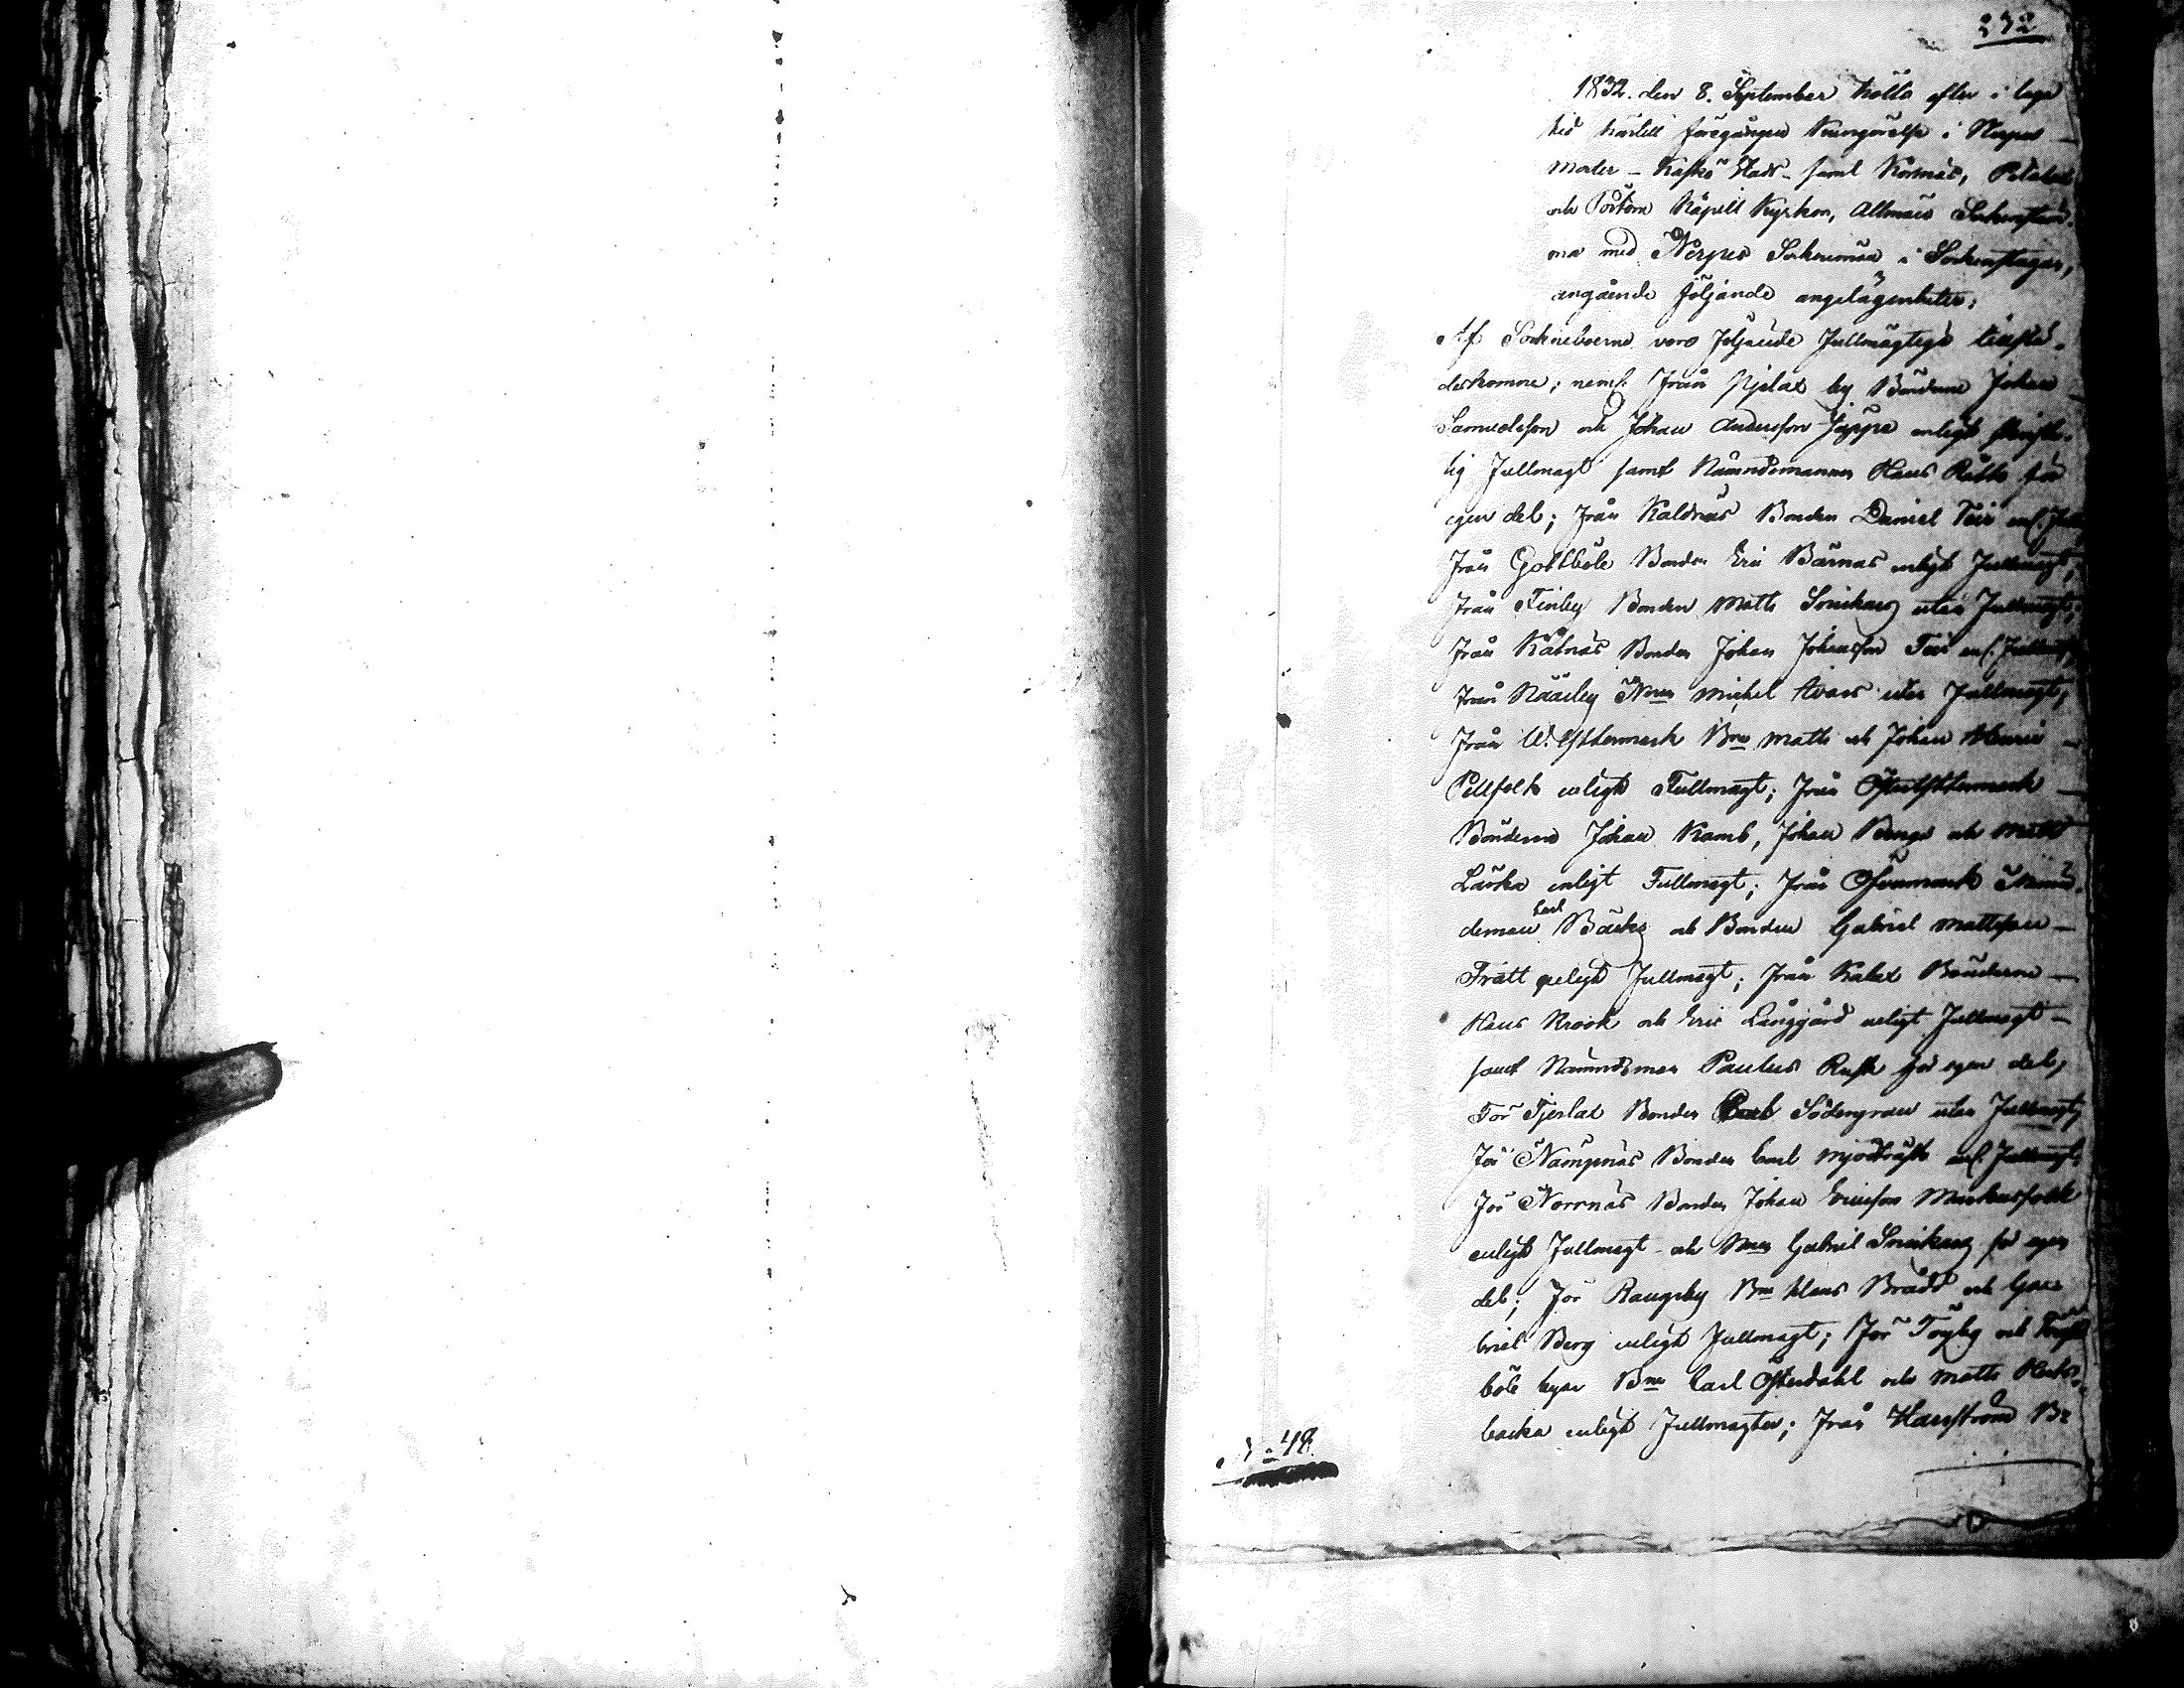 232
1832. den 8. September hölls efter i laga
tid härtill föregången Kungörelse i Nerpes
Moder - Kaskö Stads - samt Korsnäs, Petalax
och Pörtom Kapell Kyrkor, Allmän Sockenstäm-
ma med Nerpes Sockenmän i Sockenstugan,
angående följande angelägenheter;
Af Sockneboerne voro följande fullmägtige tillstä-
deskomne; neml. från Njelax by Bönderne Johan
Samuelsson och Johan Andersson Jåppe enligt skrift-
lig Fullmagt samt Nämndemannen Hans för
egen del; från Kaldnäs Bonden Daniel Teir enl.
från Gottböle Bonden Eric Bärnas enligt Fullmagt;
från Finby Bonden Matts Snickars utan Fullmagt;
från Kåtnäs Bonden Johan Johansson Teir enl. Fullmagt;
från Näsby Michel utan Fullmagt;
från W. Yttermark Matts och Johan Henric
Pellfolk enligt Fullmagt; från Öster Yttermark
Bönderne Johan Kamb, Johan Benga och Matts
Lärka enligt Fullmagt; från Öfvermark Nämn-
deman Carl Bäcks och Bonden Gabriel Mattsson
Frätt enligt Fullmagt; från Kalax Bönderne
Hans Krook och Eric Långgård enligt Fullmagt
samt Nämndeman Paulus Rusk för egen del,
För Tjerlax Bonden Södergran utan Fullmagt,
för Nämpnäs Bonden Carl Mjödträsk enl. Fullmagt.
för Norrnäs Bonden Johan Ericsson Markusfolk
enligt Fullmagt och Gabriel Snickars för egen
del; för Rangsby Hans Brädd och Gab-
briel Berg enligt Fullmagt; för Töjby och
böle byar Carl Österdahl och Matts
backa enligt Fullmagter; från Harrström
N:o 48.